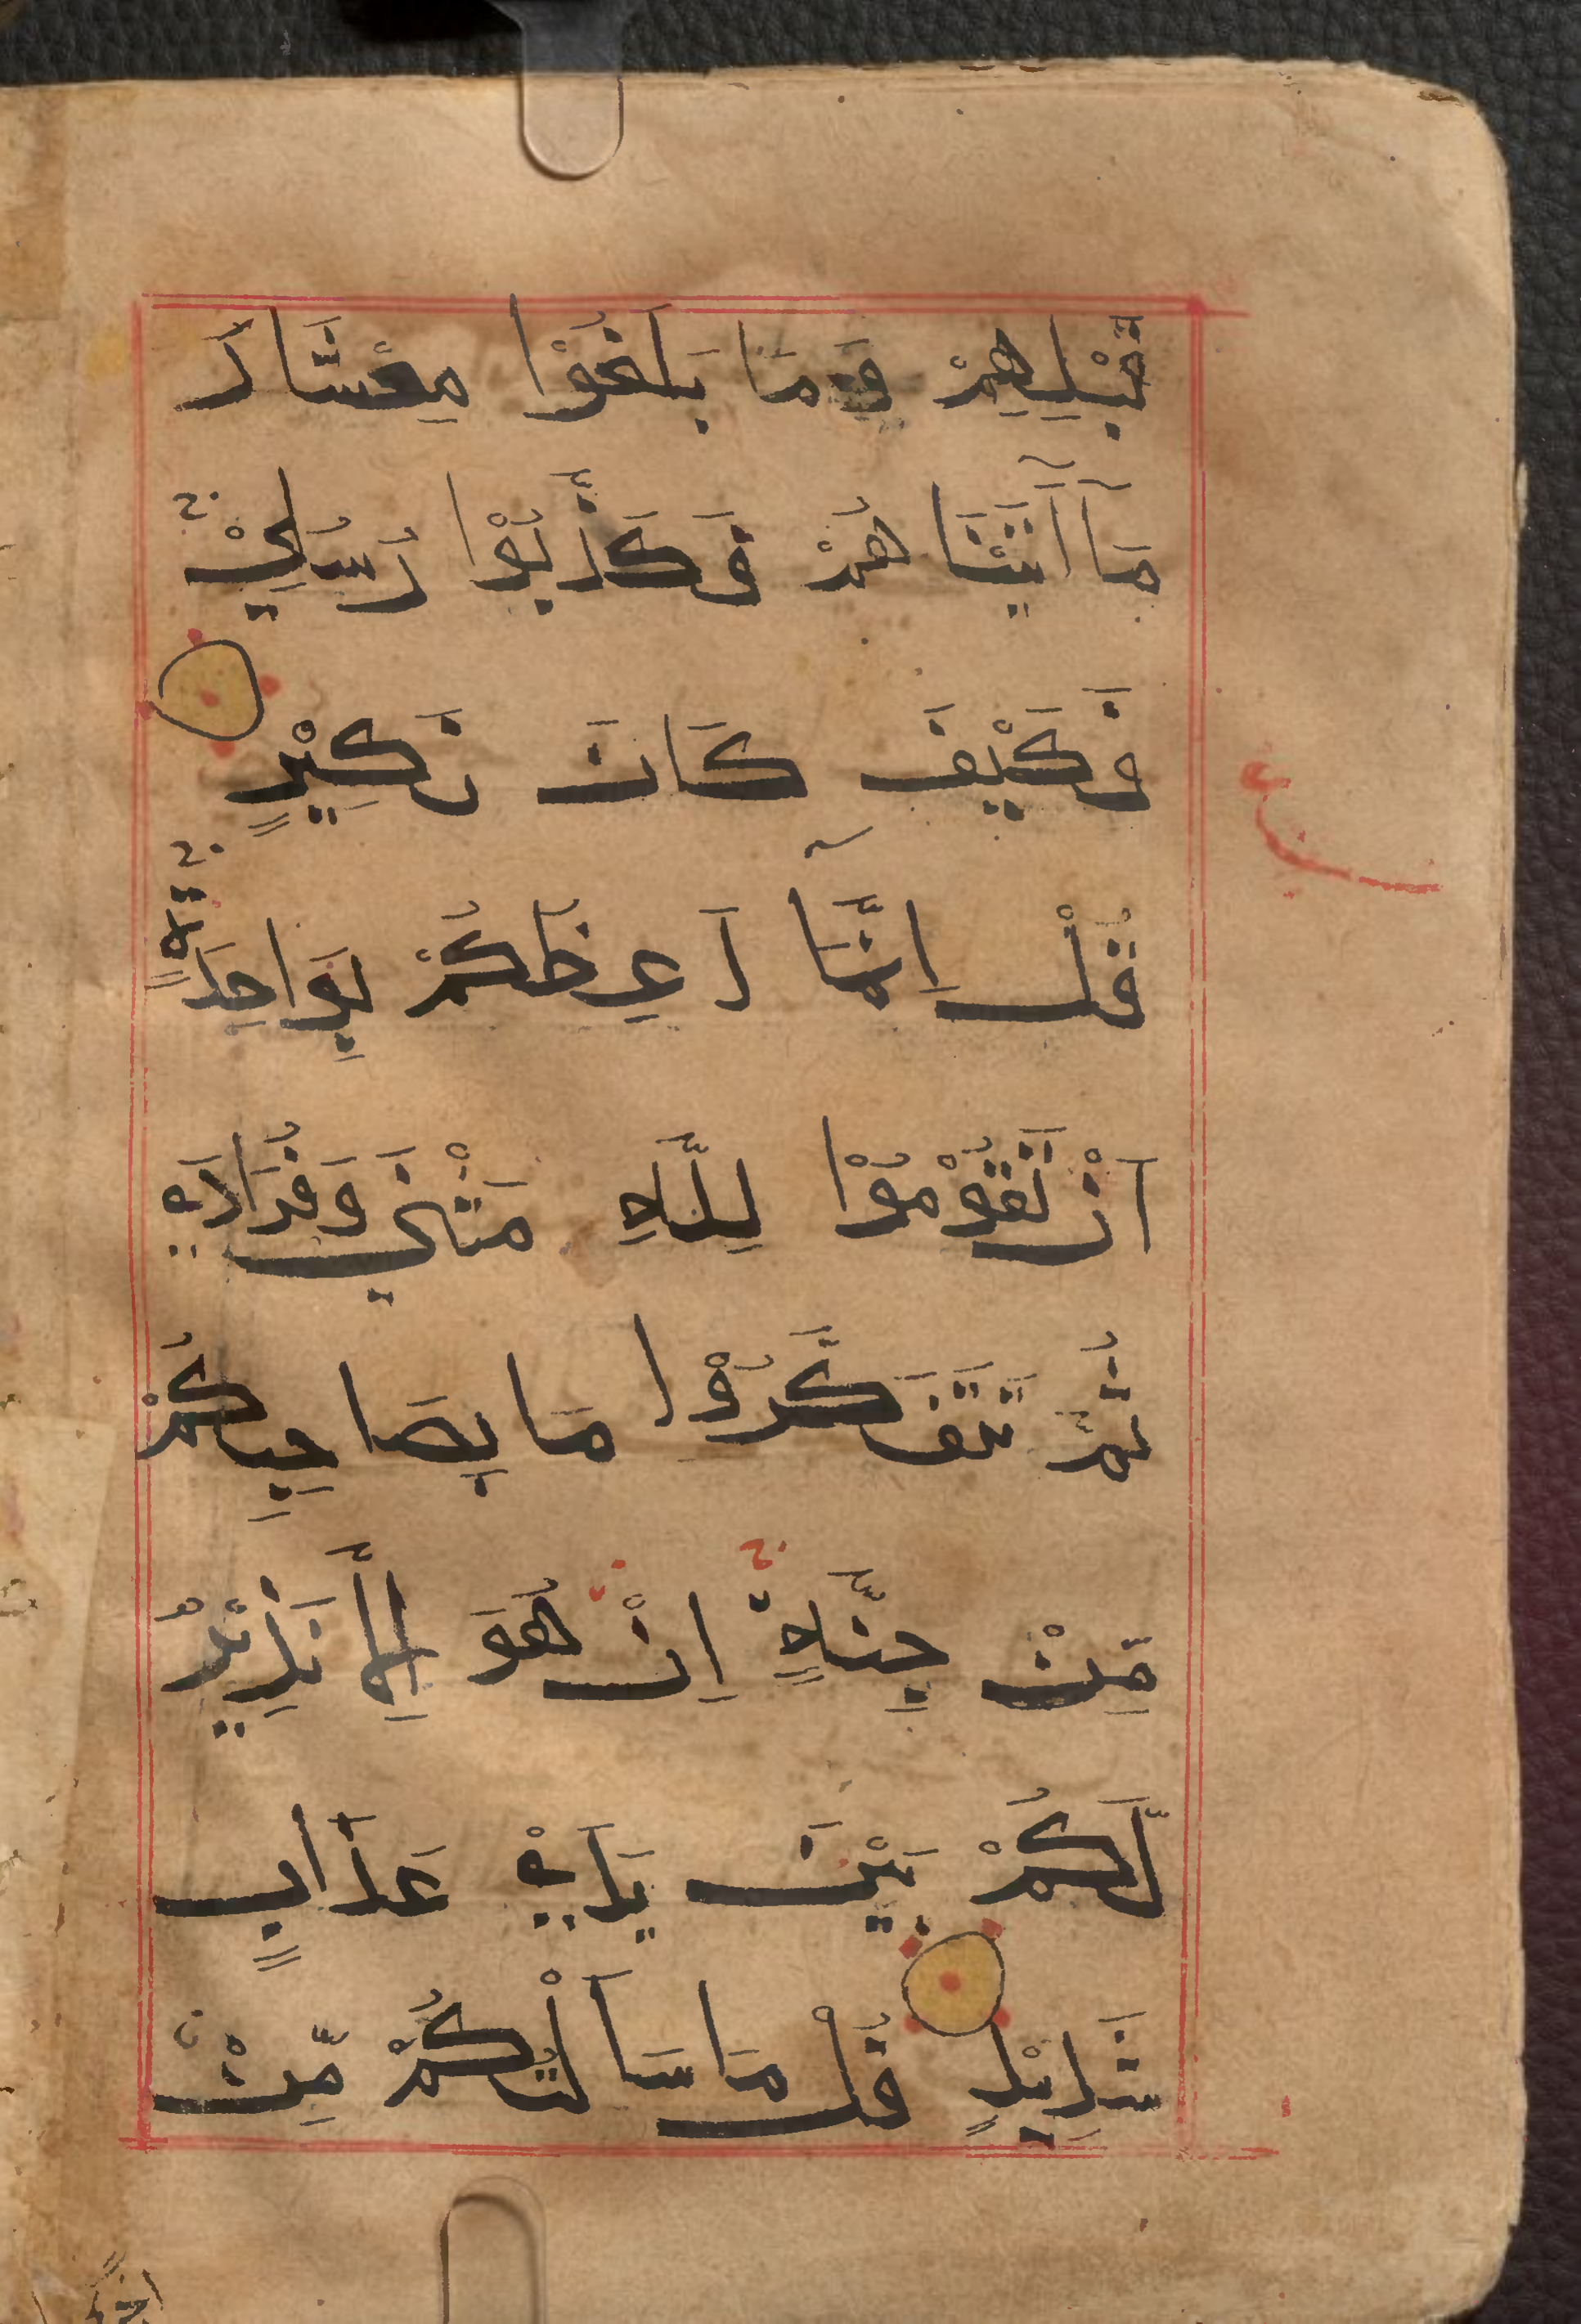 قَبْلِهِمْ وَمَا بَلَغُوْا مِعْشَارَ
مَآ اٰتَيْنَاهُمْ فَكَذَّبُوْا رُسُلِيْ ج
فَكَيْفَ كَانَ نَكِيْرٍ
قُلْ اِنَّمَآ اَعِظُكُمْ بِوَاحِدَةٍ ج
اَنْ تَقُوْمُوْا لِلّٰهِ مَثْنٰى وَفُرَادٰى
ثُمَّ تَتَفَكَّرُوْا مَا بِصَاحِبِكُمْ
مِنْ جِنَّةٍ ج اِنْ هُوَ اِلَّا نَذِيْرٌ
لَّكُمْ بَيْنَ يَدَيْ عَذَابٍ
شَدِيْدٍ قُلْ مَا سَاَلْتُكُمْ مِّنْ